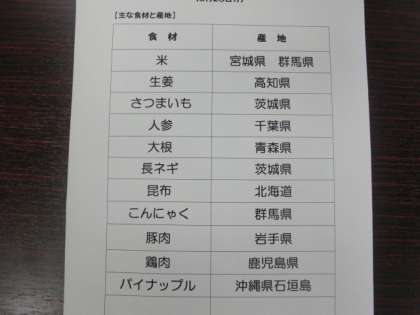 【主な食材と産地】
食 材 産 地
米 宮城県 群馬県
生姜 高知県
さつまいも 茨城県
人参 千葉県
大根 青森県
長ネギ 茨城県
昆布 北海道
こんにゃく 群馬県
豚肉 岩手県
鶏肉 鹿児島県
パイナップル 沖縄県石垣島